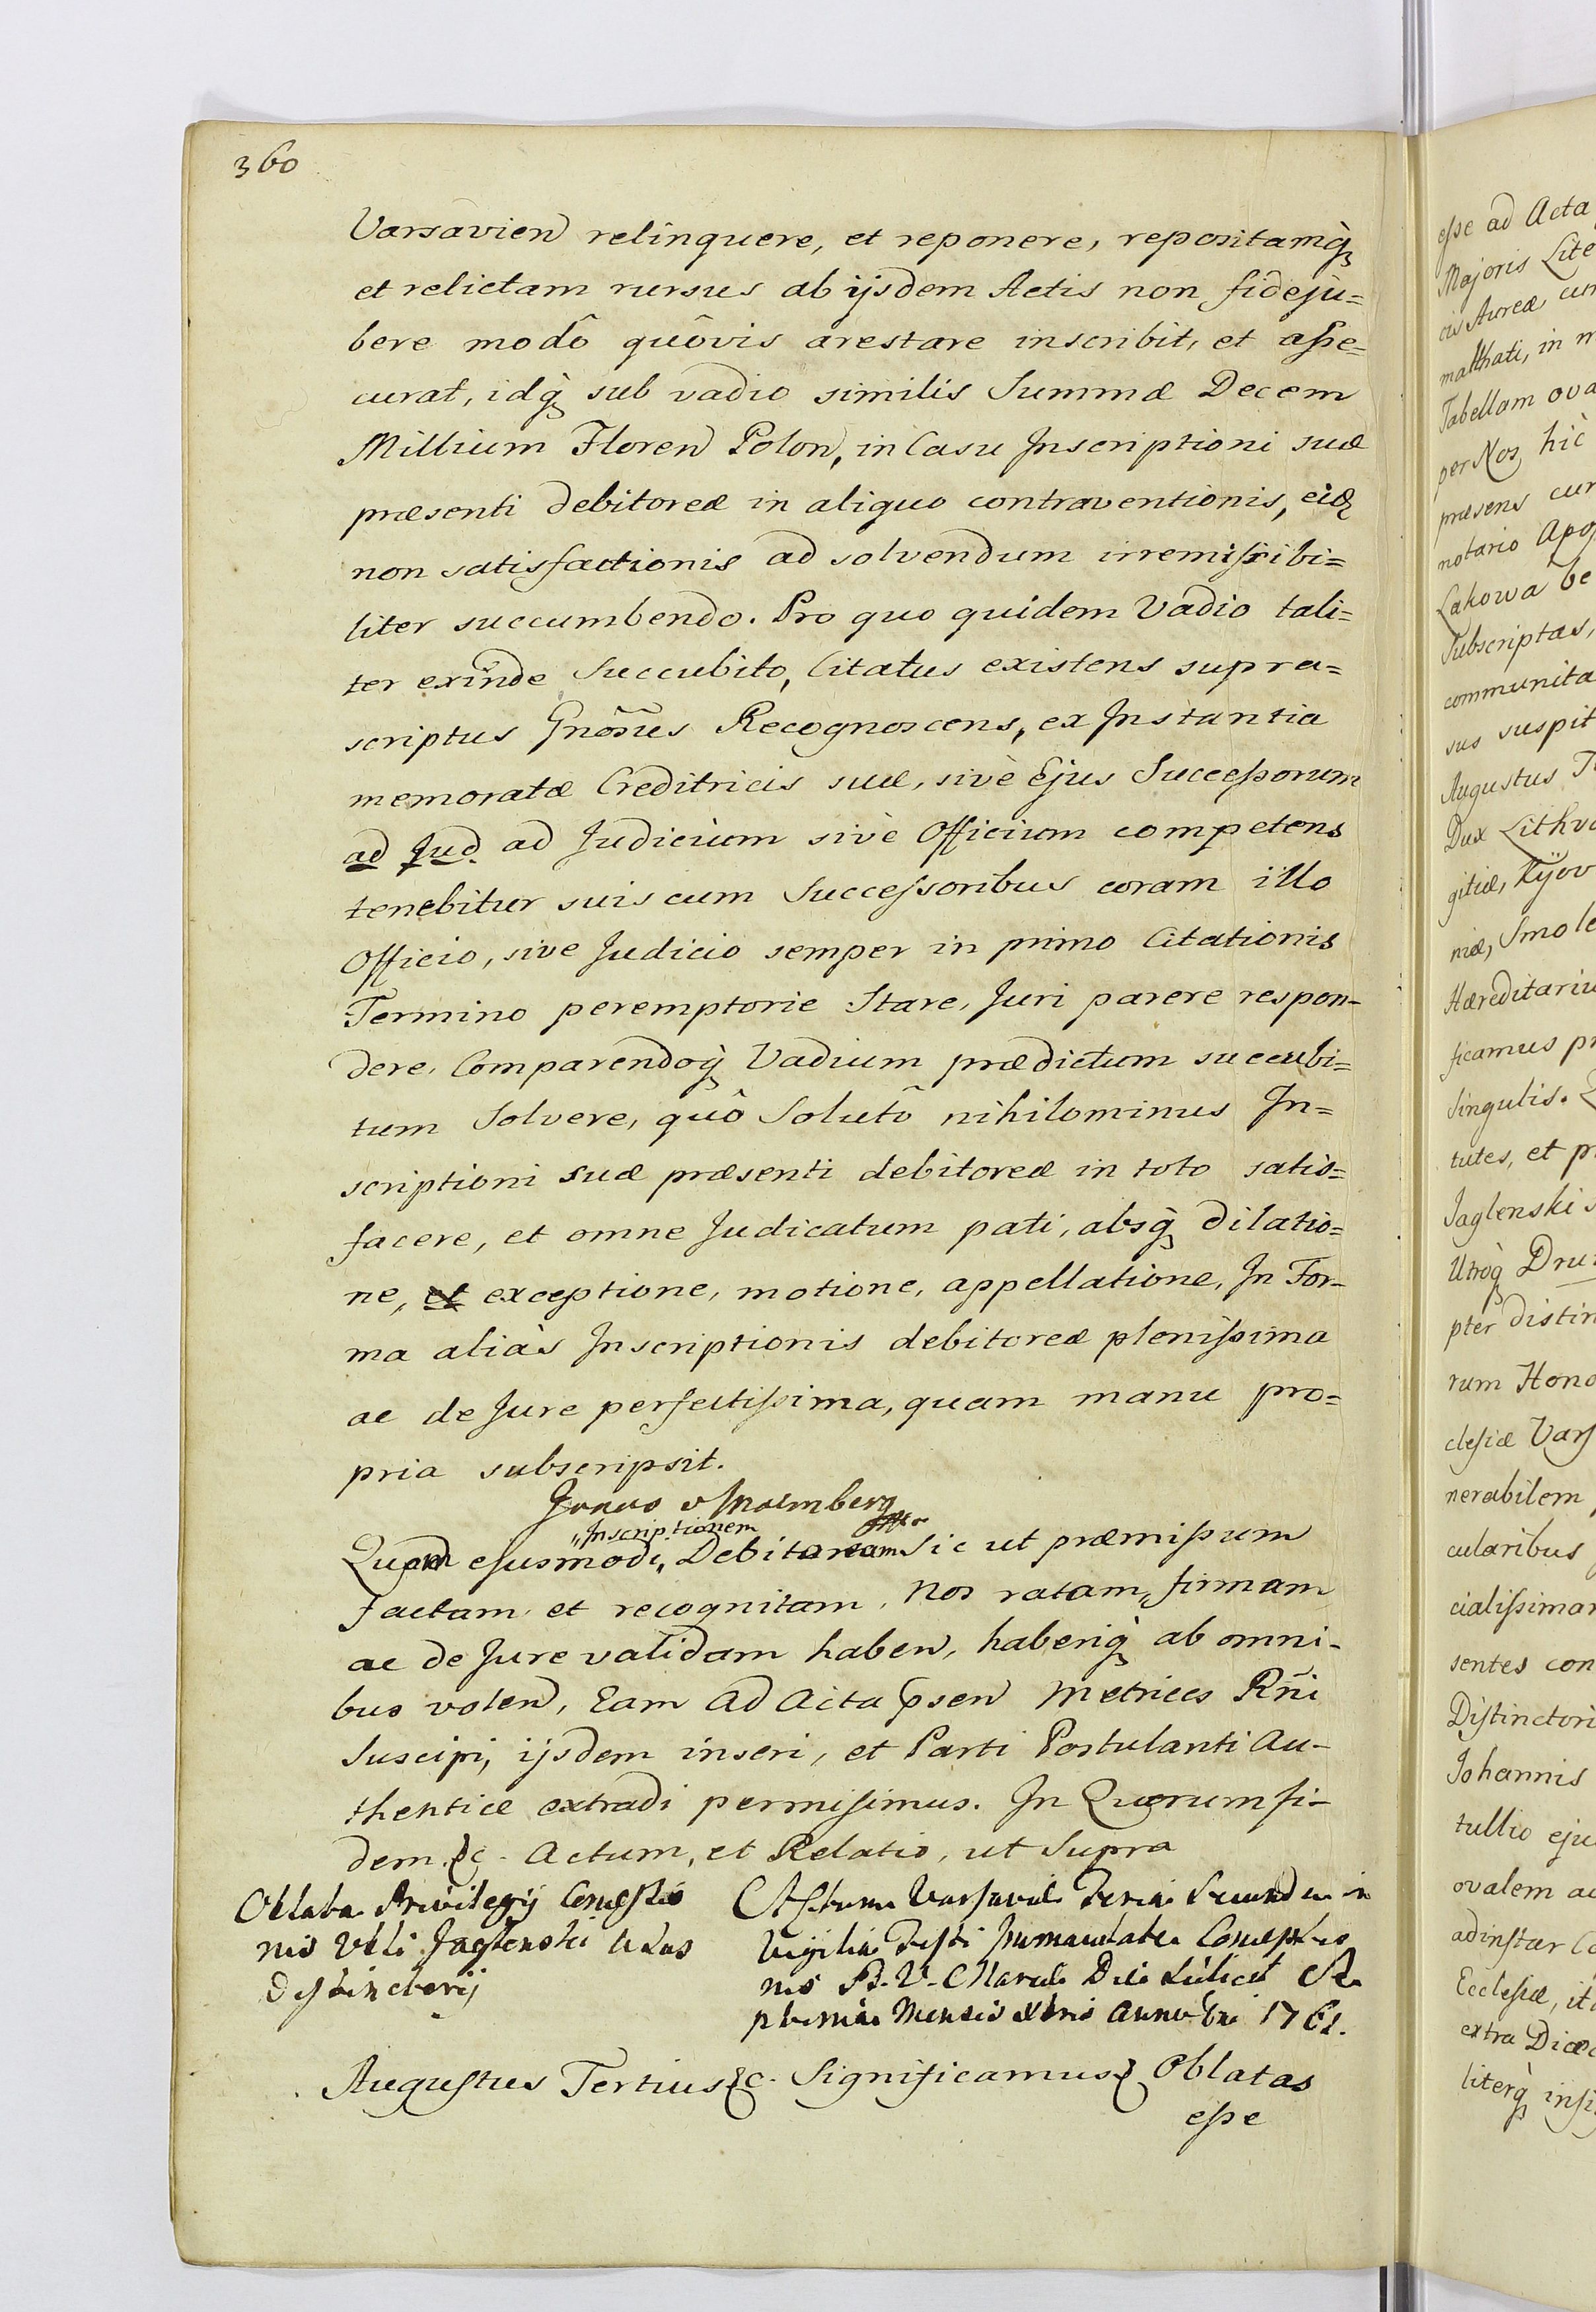 360
Varsavien relinquere, et reponere, repositamq̀
et relictam rursus ab ijsdem Actis non fideju=
bere modô quôvis arestare inscribit, et asse=
curat, idq̀ sub vadio similis Summæ Decem
Millium Floren Polon, in Casu Inscriptioni suæ
præsenti debitoreæ in aliquo contraventionis, eiq
non satisfactionis ad solvendum irremissibi=
liter succumbendo. Pro quo quidem Vadio tali=
ter exinde Succubito, Citatus existens supra=
scriptus Gnõsus Recognoscens, ex Instantia
memoratæ Creditricis suæ, sivè Ejus Successorum
ad Jud. ad Judicium sivè Officium competens
tenebitur suis cum Successoribus coram illo
Officio, sive Judicio semper in primo Citationis
Termino peremptorie Stare, Juri parere respon-
dere, Comparendoq̀ Vadium prædictum succubi=
tum Solvere, quô Solutô nihilominus In=
scriptioni suæ præsenti debitoreæ in toto satis=
facere, et omne Judicatum pati, absq̀ dilatio=
ne, et exceptione, motione, appellatione, In For-
ma aliàs Inscriptionis debitoreæ plenissima
ac de Jure perfectissima, quam manu pro=
pria subscripsit.
Jonas Malmberg
Inscriptionem
Quam ejusmodi, Debitoream Sic ut præmissum
factam et recognitam, Nos ratam, firmam
ac de Jure validam haben, haberiq̀ ab omni-
bus volen, Eam ad Acta psen Metrices Rñi
Suscipi, ijsdem inseri, et Parti Postulanti Au-
thentice extradi permisimus. In Quorum fi-
dem &c. Actum, et Relatio, ut Supra
Oblata Privilegij Concessio
nis Vbli Jaglenski
Distinctorij
Actum Varsaviæ Feria Secunda in
Vigilia Festi Immaculatæ Conceptio
nis B. V. Mariæ Die scilicet Se
ptima Mensis Xbris Anno Dni 1761.
Augustus Tertius &c. Significamus & Oblatas
esse
esse ad Acta
Majoris Lite
cis Aurea cum
malthati, in m
Tabellam ova
per Nos hic
præsens cur
notario Apos
Lakowa be
Subscriptas,
communita
sus suspit
Augustus T
Dux Lithva
gitiæ, Kÿov
niæ, Smole
Hæreditariu
ficamus pr
Singulis. Q
tutes, et p
Jaglenski s
Utroq̀ Dru
pter distin
rum Hono
clesiæ Vars
nerabilem
cularibus
cialissimam
sentes con
Distinctori
Johannis
tullio eju
ovalem ac
adinstar Ca
Ecclesiæ, it
extra Diœc
literq̀ insi